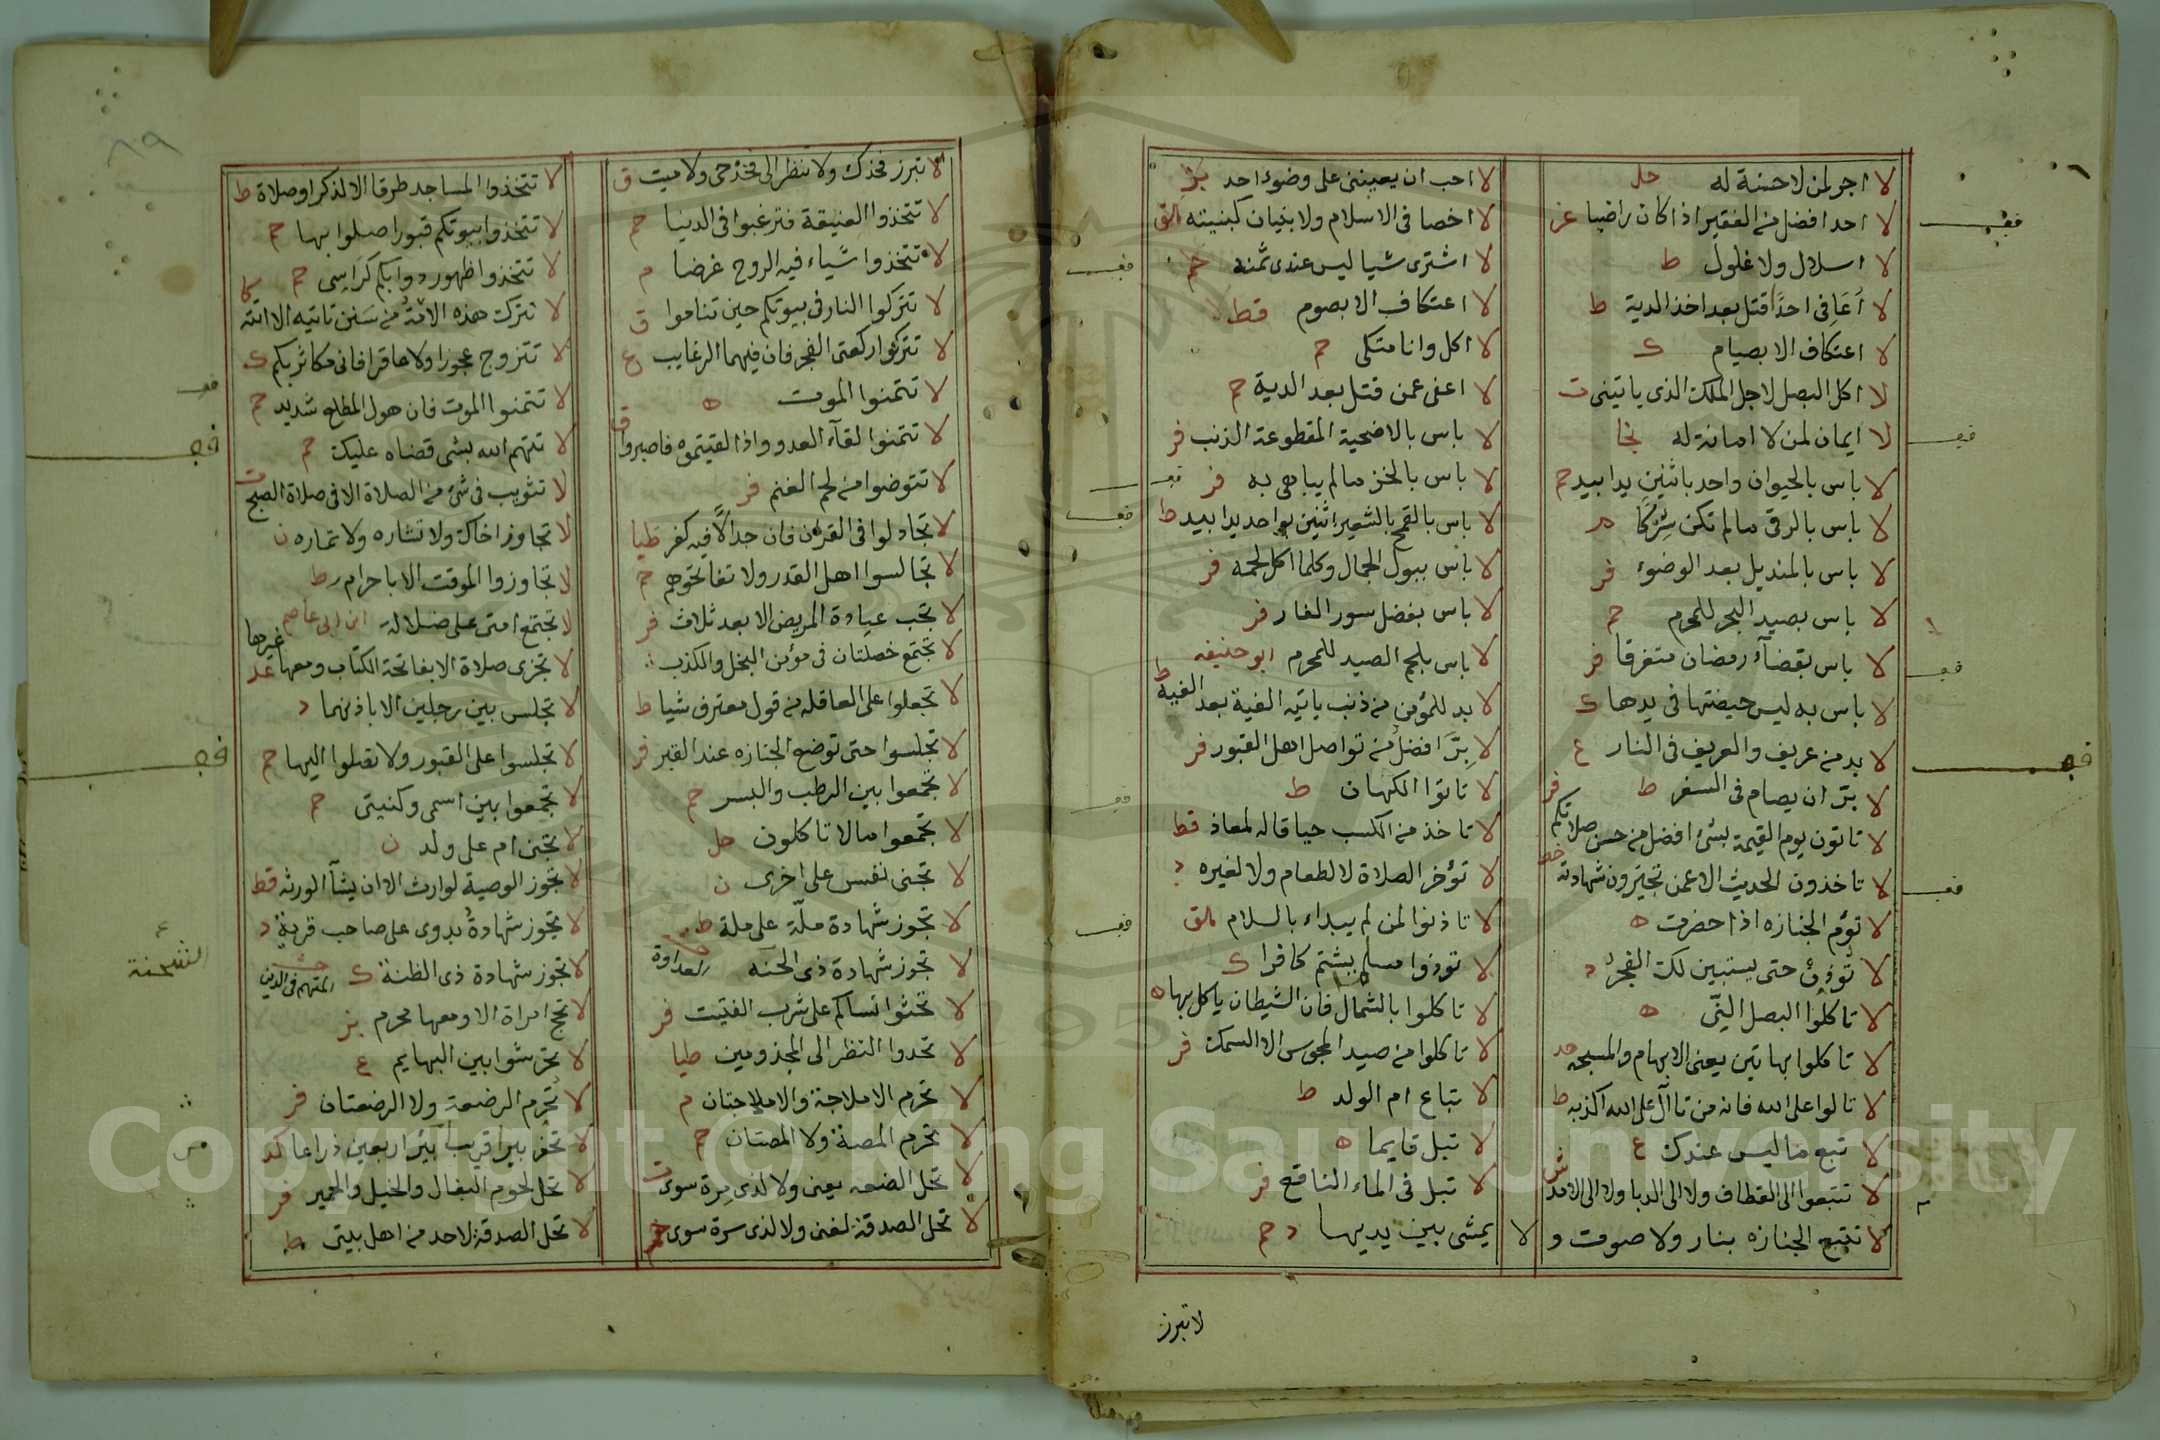 لا اجر لمن لاحسنة له حل
لا احد افضل من الفقير اذا كان راضيا غر
لا اسلال ولا غلول ط
لا أعافى احدًا قتل بعد اخذ الدية ط
لا اعتكاف الا بصيام ك
لا اكل البصل لاجل الملك الذى ياتينى ت
لا ايمان لمن لا امانة له نجا
لا باس بالحيوان واحد باثنين يدا بيد حم
لا باس بالرقى مالم تكن شركا م
لا باس بالمنديل بعد الوضوء فر
لا باس بصيد البحر للمحرم حم
لا باس بقضآء رمضان متفرقا فر
لا باس به ليس حيضتها فى يدها ك
لا بد من عريف والعريف فى النار ع
لا برّ ان يصام فى السفر ط
لا تاتون يوم القيمة بشئ افضل من حسن صلاتكم فر
لا تاخذون الحديث الا عمن تجيزون شهادته خط
لا تؤم الجنازه اذا حضرت ه
لا تؤذن حتى يستبين لك الفجر د
لا تاكلوا البصل النيّ ه
لا تاكلوا بهاتين يعنى الابهام والمسبحه
لا تالوا على الله فانه من تاآل على الله اكذبه ط
لا تبع ماليس عندك ع
لا تتبعوا الى القطاف ولا الى الدبا ولا الى
لا تتبع الجنازه بنار ولا صوت و
لا احب ان يعيننى على وضوء احد بز
لا اخصا فى الاسلام ولا بنيان كنيسة هق
لا اشترى شيا ليس عندى ثمنه حم
لا اعتكاف الا بصوم قط
لا اكل وانا متكى حم
لا اعفى عمن قتل بعد الدية حم
لا باس بالاضحية المقطوعة الذنب فر
لا باس بالخز مالم يباهى به فر
لا باس بالقمح بالشعير اثنين بواحد يدا بيد ط
لا باس ببول الجمال وكلما اكل لحمه فر
لا باس بفضل سور الفار فر
لا باس بلحم الصيد للمحرم ابو حنيفه
لا بد للمؤمن من ذنب ياتيه الفية بعد الفية ط
لا برّ افضل من تواصل اهل القبور فر
لا تاتوا الكهان ط
لا تاخذ من الكسب حيا قاله لمعاذ قط
لا تؤخر الصلاة لا لطعام ولا لغيره د
لا تاذنوا لمن لم يبداء بالسلام هق
لا توذوا مسلم بشتم كافرا ك
لا تاكلوا بالشمال فان الشيطان ياكل بها ه
لا تاكلوا من صيد المجوس الا السمك فر
لا تباع ام الولد ط
لا تبل قايما ه
لا تبل فى الماء الناقع فر
لا يمشى بين يديها د حم
لا تبرز
لا تبرز فخذك ولا تنظر الى فخذ حى ولا ميت ق
لا تتخذوا الضيعة فترغبوا فى الدنيا حم
لا تتخذوا شياء فيه الروح غرضا م
لا تتركوا النار فى بيوتكم حين تناموا ق
لا تتركوا ركعتى الفجر فان فيهما الرغايب ع
لا تتمنوا الموت ه
لا تتمنوا لقآء العدو واذا لقيتموه فاصبروا ق
لا تتوضوا من لحم الغنم فر
لا تجادلوا فى القران فان جدالًا فيه كفر طيا
لا تجالسوا اهل القدر ولا تفاتحوهم حم
لا تجب عيادة المريض الا بعد ثلاث فر
لا تجتمع خصلتان فى مؤمن البخل والكذب
لا تجعلوا على العاقله من قول معترف شيا ط
لا تجلسوا حتى توضع الجنازه عند القبر فر
لا تجمعوا بين الرطب والبسر حم
لا تجمعوا مالا تاكلون حل
لا تجنى نفس على اخرى ن
لا تجوز شهادة ملّة على ملة ط
لا تجوز شهادة ذى الحنه العداوة
لا تحثوا نساكم على شرب الفتيت فر
لا تحدوا النظر الى المجذومين طيا
لا تحرم الاملاجة والاملاجتان م
لا تحرم المصة ولا المصتان حم
لا تحل الصدقه يعنى ولا لذى مرة سوى ت
لا تحل الصدقة لغنى ولا لذى مرة سوى حم
لا تتخذوا المساجد طرقا الا لذكر او صلاة ط
لا تتخذوا بيوتكم قبورا صلوا بها حم
لا تتخذوا ظهور دوابكم كراسى حم
لا تترك هذه الامة من سنن تاتيه الا اتته
لا تتزوج عجوزا ولا عاقرا فانى مكاثر بكم ك
لا تتمنوا الموت فان هول المطلع شديد حم
لا تتهم الله بشى قضاه عليك حم
لا تثويب فى شئ من الصلاة الا فى صلاة الصبح ت
لا تجاوز اخاك ولا تشاره ولا تماره ن
لا تجاوزوا الموقت الا باحرام ط
لا تجتمع امتى على ضلالة ابن ابى عاصم
لا تجزى صلاة الا بفاتحة الكتاب ومعها غيرها عد
لا تجلس بين رجلين الا باذنهما د
لا تجلسوا على القبور ولا تصلوا اليها حم
لا تجمعوا بين اسمى وكنيتى حم
لا تجنى ام على ولد ن
لا تجوز الوصية لوارث الا ان يشآ الورثه قط
لا تجوز شهادة بدوى على صاحب قرية د
لا تجوز شهادة ذى الظنة ك المتهم فى الدين
لا تحج امراة الا ومعها محرم بز
لا تحرشوا بين البهايم ع
لا تحرم الرضعة ولا الرضعتان فر
لا تحفر بيرا قريب بير اربعين ذراعا
لا تحل لحوم البغال والخيل والحمير فر
لا تحل الصدقة لاحد من اهل بيتى ط
Copyright © King Saud University